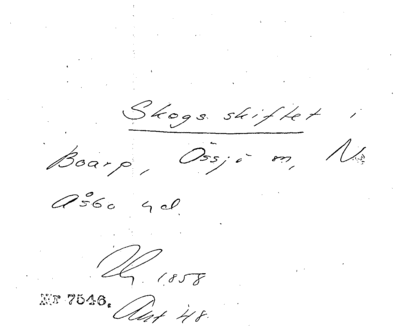 Skogsskiftet i
Boarp, Össjö m, N.
Åsbo hd.
1858
Nr 7546. Ant 48